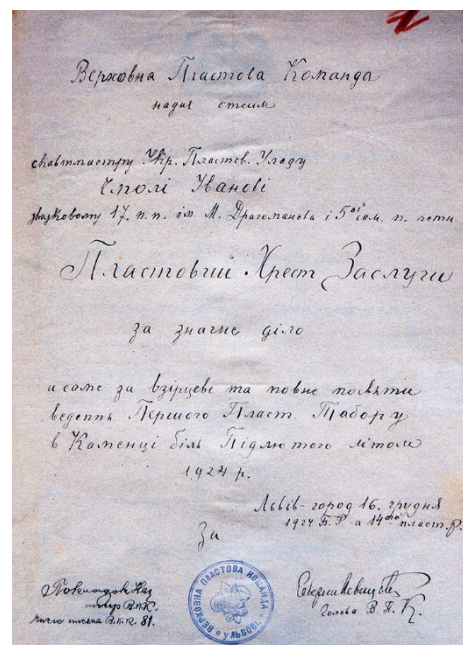 Верховна Пластова Команда
надає отсим
скавтмастру Укр. Пластов. Уладу
Чмолі Іванові
звязковому 17. п. п. ім. М. Драгоманова і 5ої гом. п. чети
Пластовий Хрест Заслуги
за значне діло
а саме за взірцеве та повне посвяти
ведення Першого Пласт. Табору
в Каменці біль Підлютого літом
1924 р.
Львів-город 16. грудня
1924 Б. Р. а 14ого пласт. р.
За
ВЕРХОВНА ПЛАСТОВА КОМАНДА
у ЛЬВОВІ
В.П.К.
Число письма В.П.К. 81.
Голова В. П. К.